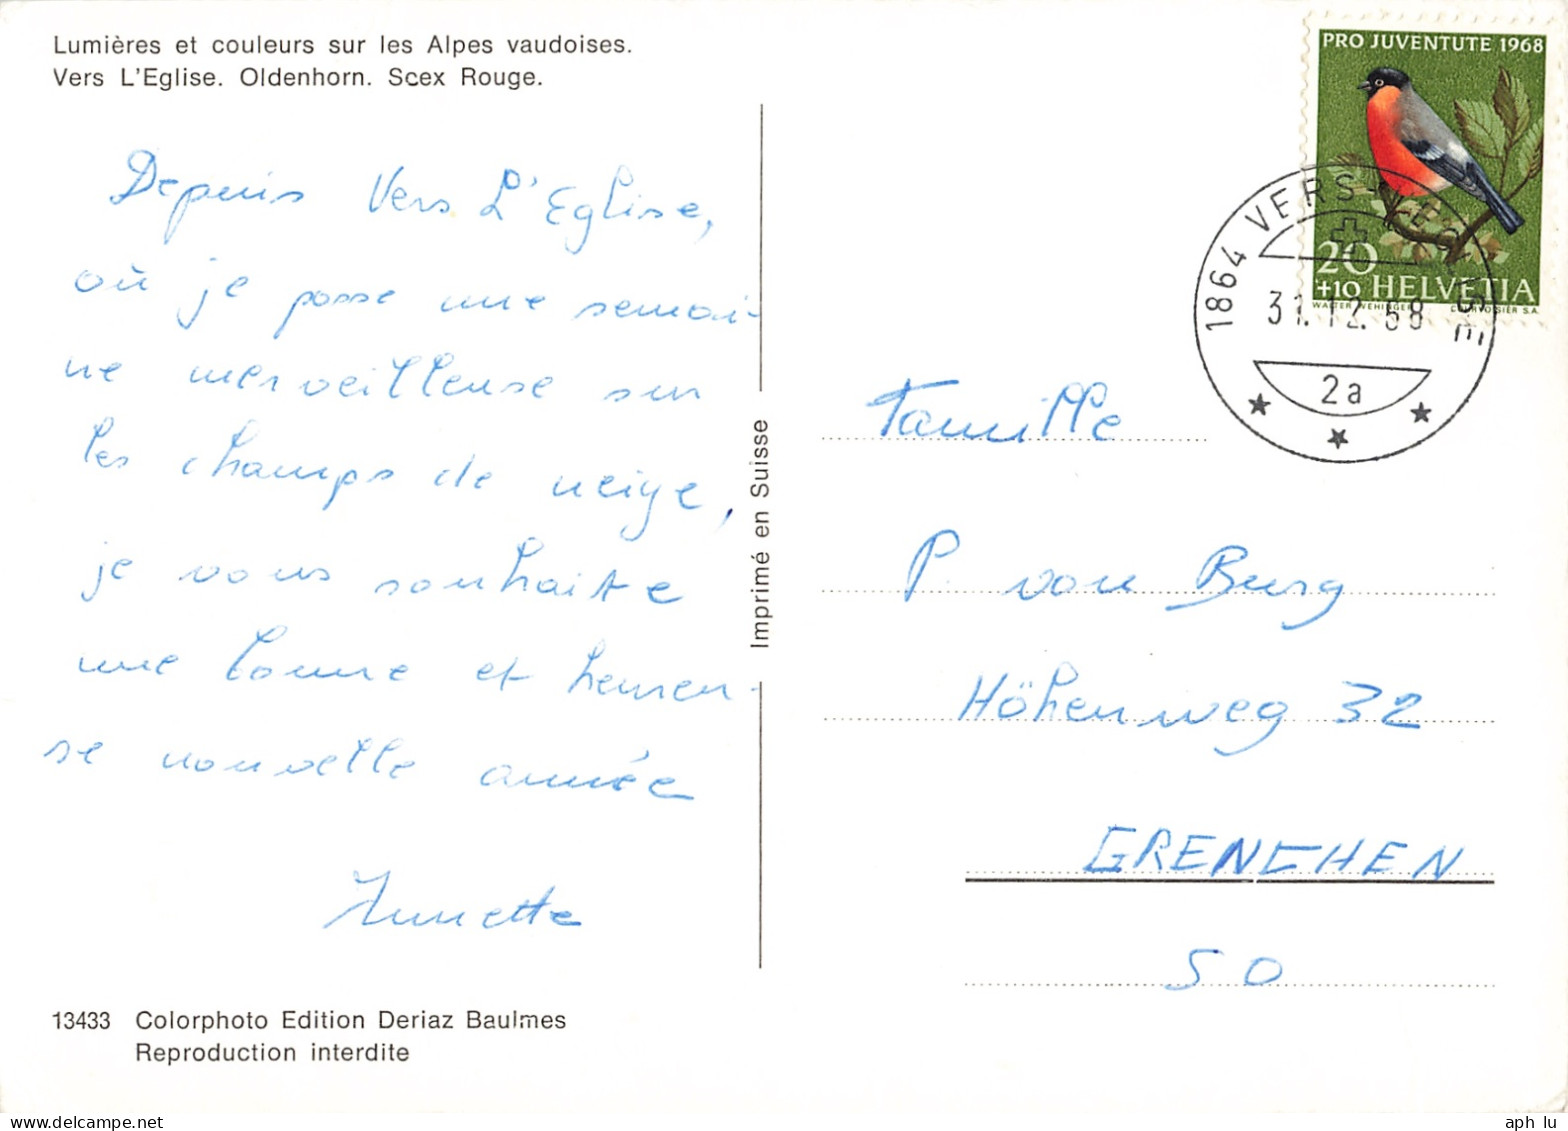 Lumières et couleurs sur les Alpes vaudoises.
Vers L'Eglise. Oldenhorn. Scex Rouge.
Depuis Vers L'Eglise,
où je passe une semai-
ne merveilleuse sur
les champs de neige,
je vous souhaite
une bonne et heureu-
se nouvelle année
Annette
13433 Colorphoto Edition Deriaz Baulmes
Reproduction interdite
Imprimé en Suisse
PRO JUVENTUTE 1968
20
+10 HELVETIA
WALTER WEHINGER COURVOISIER S.A.
1864 VERS-L'EGLISE
31.12.68
2a
Famille
P von Burg
Höhenweg 32
GRENCHEN
SO
aph lu